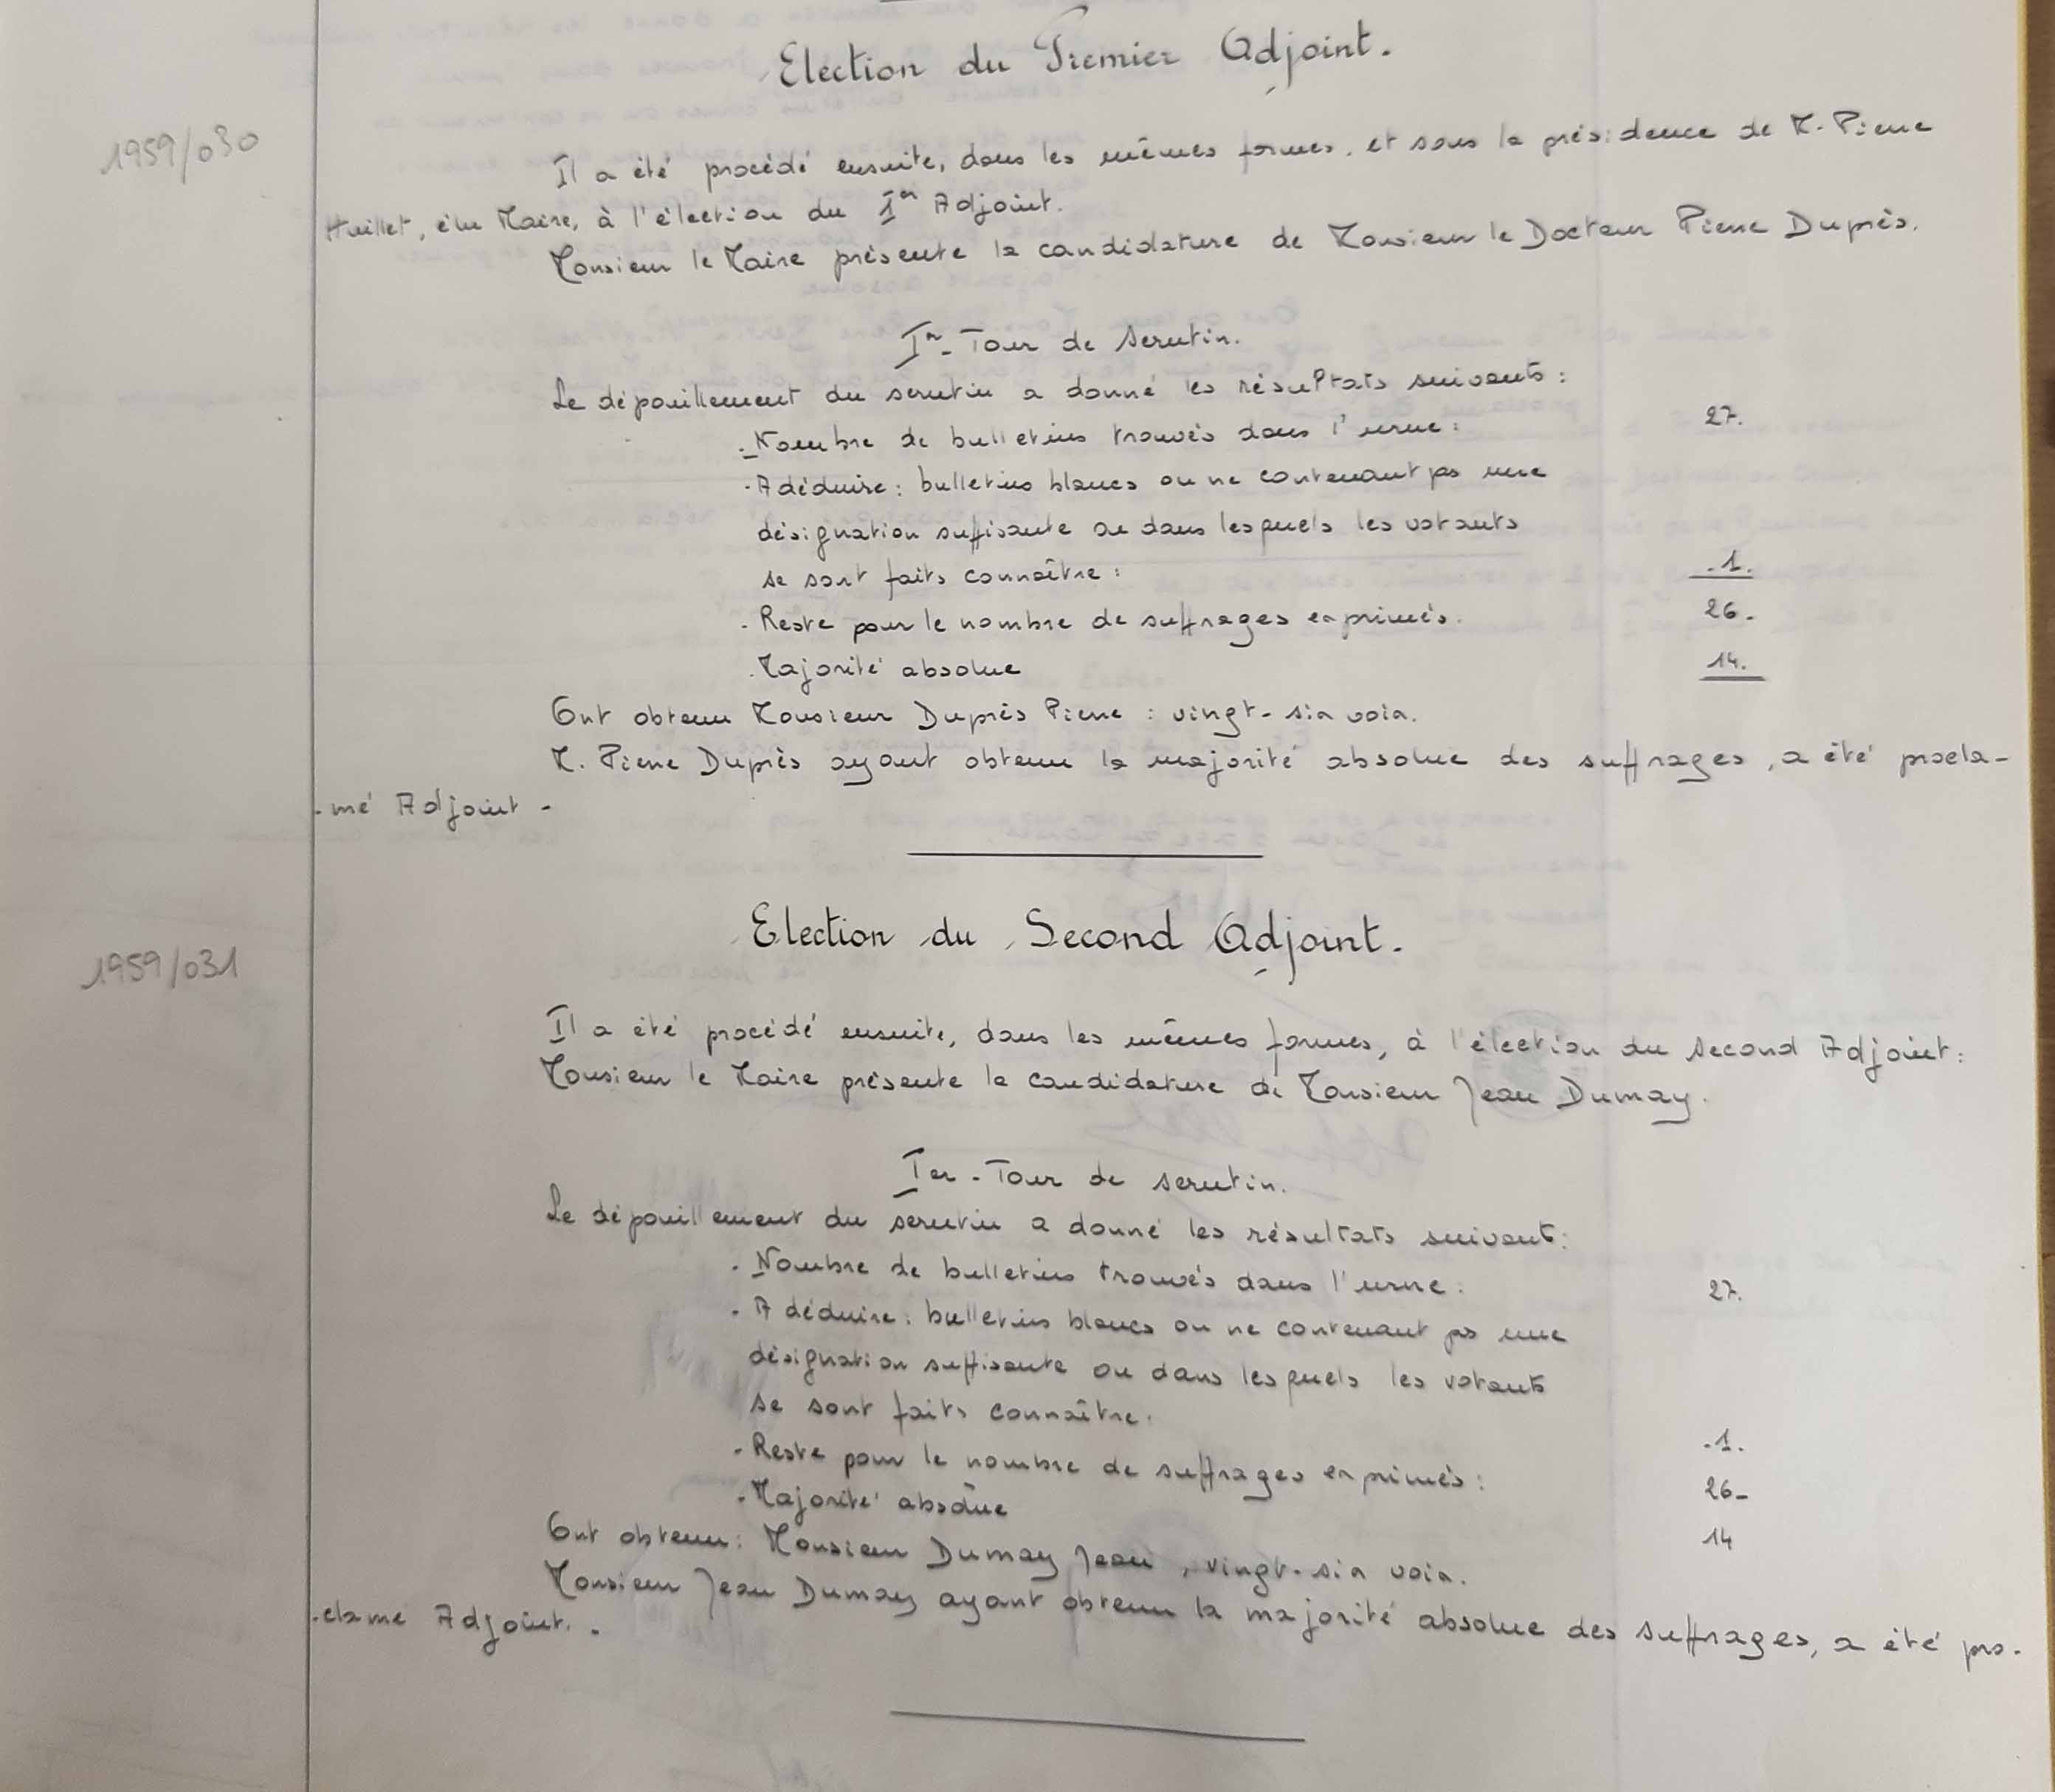 Election du Premier Adjoint.
1959/030
Il a été procédé ensuite, dans les mêmes formes, et sous la présidence de M. Pierre
Huillet, élu Maire, à l'élection du 1er Adjoint.
Monsieur le Maire présente la candidature de Monsieur le Docteur Pierre Duprès.
Ier - Tour de scrutin.
Le dépouillement du scrutin a donné les résultats suivants :
- Nombre de bulletins trouvés dans l'urne : 27.
- A déduire : bulletins blancs ou ne contenant pas une
désignation suffisante ou dans lesquels les votants
se sont faits connaître : - 1.
- Reste pour le nombre de suffrages exprimés. 26.
. Majorité absolue 14.
Ont obtenu Monsieur Duprès Pierre : vingt-six voix.
M. Pierre Duprès ayant obtenu la majorité absolue des suffrages, a été procla-
-mé Adjoint -
Election du Second Adjoint.
1959/031
Il a été procédé ensuite, dans les mêmes formes, à l'élection du second Adjoint :
Monsieur le Maire présente la candidature de Monsieur Jean Dumay.
Ier - Tour de scrutin.
Le dépouillement du scrutin a donné les résultats suivants :
- Nombre de bulletins trouvés dans l'urne : 27.
- A déduire : bulletins blancs ou ne contenant pas une
désignation suffisante ou dans lesquels les votants
se sont faits connaître : -1.
- Reste pour le nombre de suffrages exprimés : 26-
- Majorité absolue 14
Ont obtenu : Monsieur Dumay Jean, vingt-six voix.
Monsieur Jean Dumay ayant obtenu la majorité absolue des suffrages, a été pro-
-clamé Adjoint. -